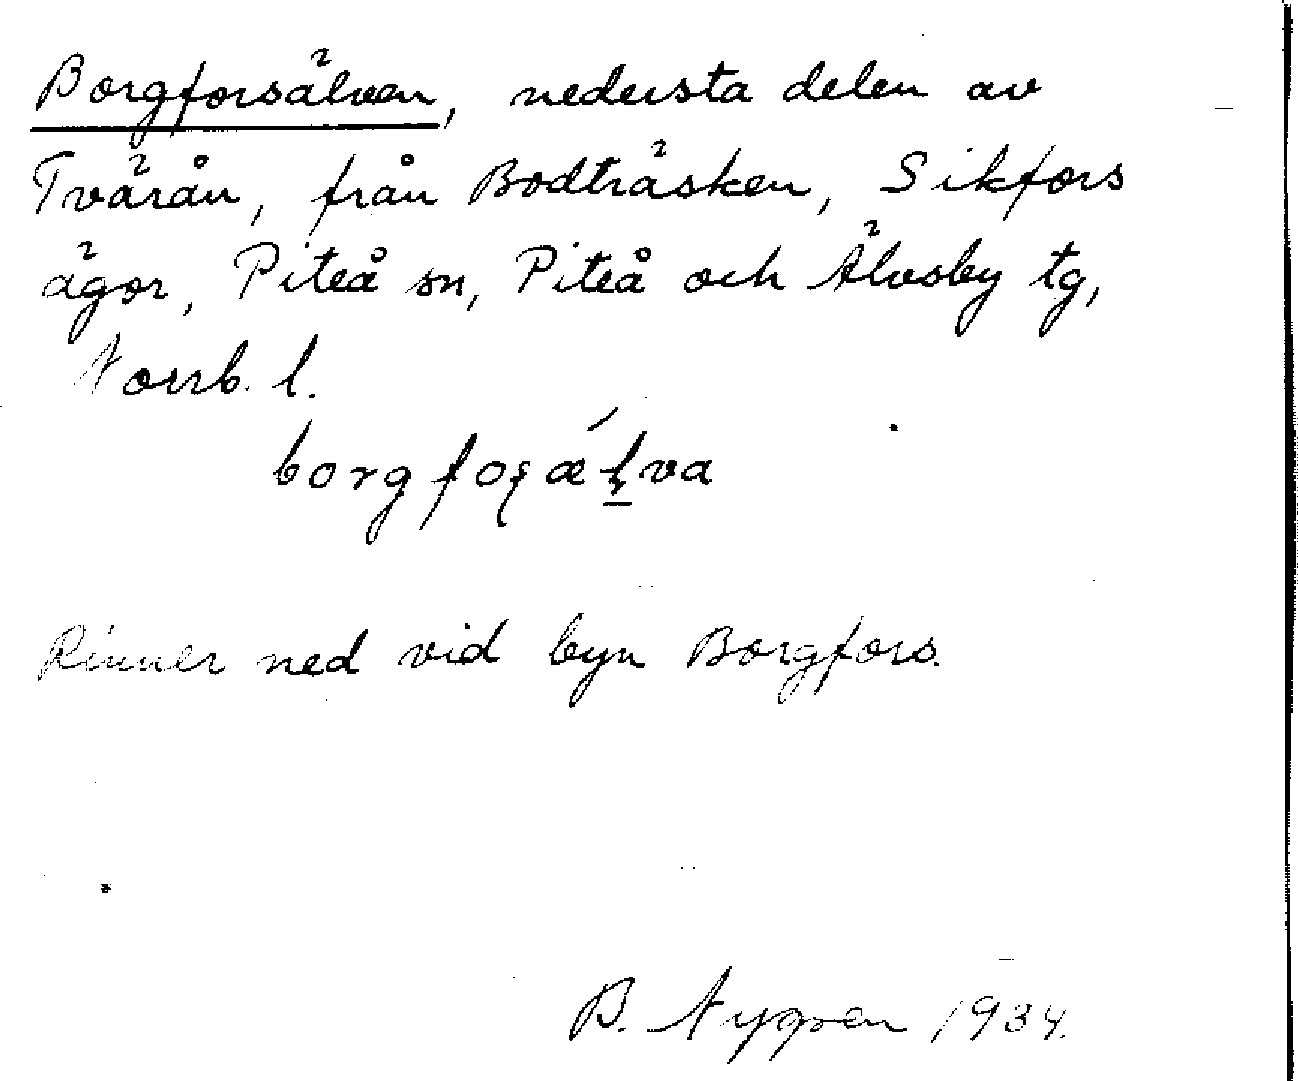 Borgforsälven, nedersta delen av
Tvärån, från Bodträsken, Sikfors
ägor, Piteå sn, Piteå och Älvsby tg,
Norrb. l.
Rinner ned vid byn Borgfors.
B. Nygren 1934.